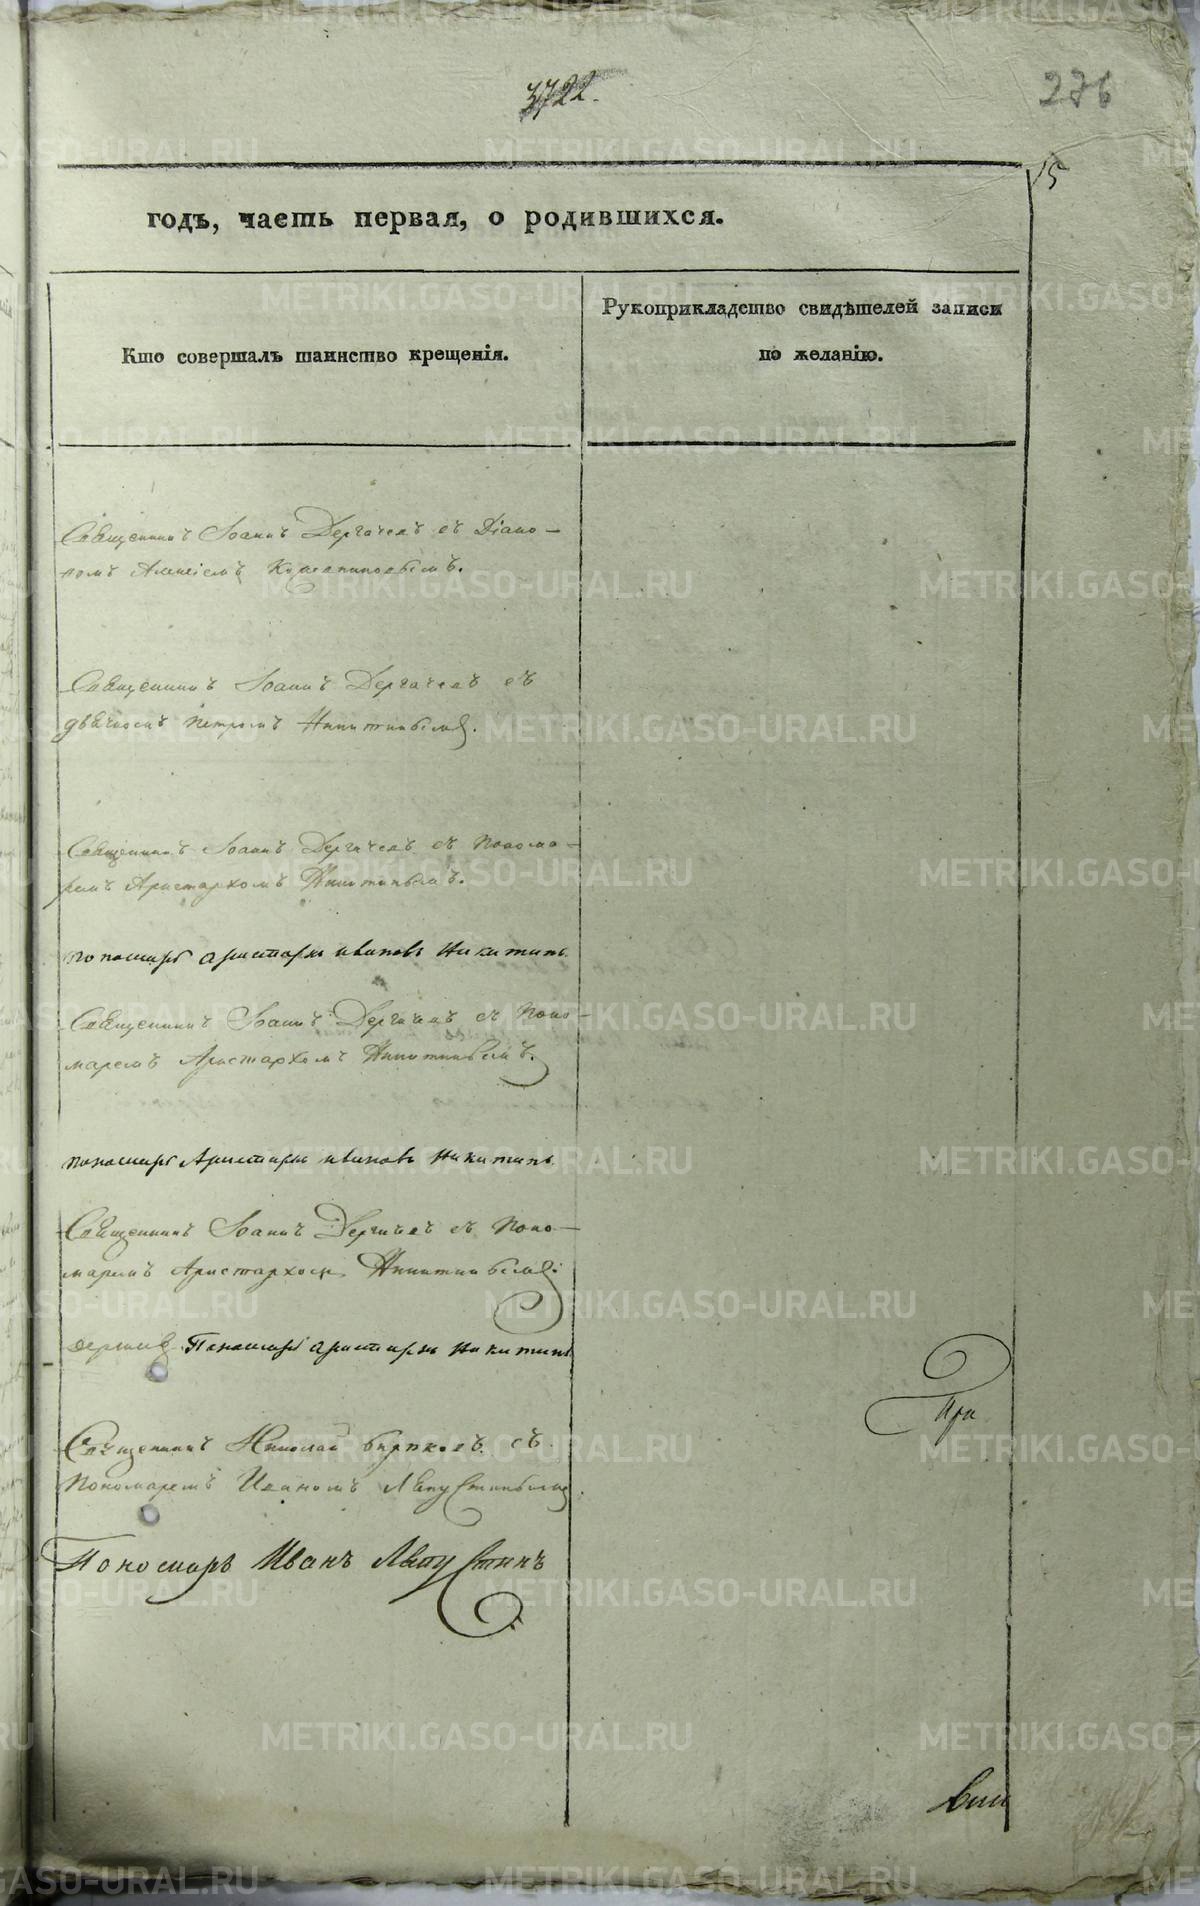 3722.
276
15
годъ, часть первая, о родившихся.
Кто совершалъ таинство крещенія.
Рукоприкладство свидѣтелей записи
по желанію.
Священникъ Іоаннъ Дергачевъ съ Діако-
номъ Алексіемъ
Священникъ Іоаннъ Дергачевъ съ
дьячкомъ Петромъ Никитинымъ.
Священникъ Іоаннъ Дергачевъ съ Поно-
ремъ Аристархомъ Никитинымъ.
пономарь Аристархъ Ивановъ Никитинъ
Священникъ Іоаннъ Дергачевъ съ Поно-
маремъ Аристархомъ Никитинымъ.
пономарь Аристархъ Ивановъ Никитинъ
Священникъ Іоаннъ Дергачевъ съ Поно-
маремъ Аристархомъ Никитинымъ.
Пономарь Аристархъ Никитинъ
Священникъ Николай Бирюковъ съ
Пономаремъ Иваномъ Ляпустинымъ.
Пономарь Иванъ Ляпустинъ
При
METRIKI.GASO-URAL.RU